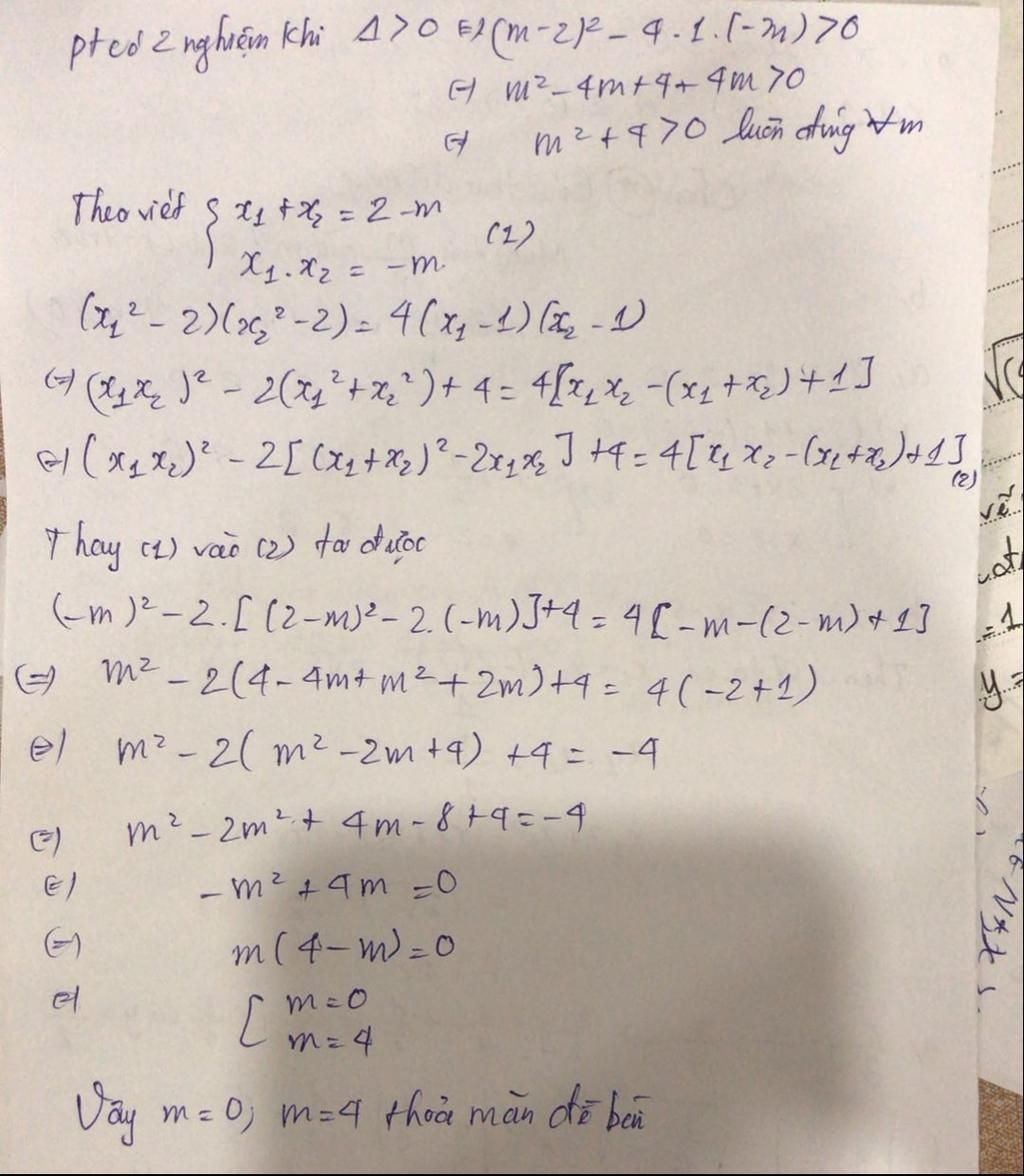 pt có 2 nghiệm khi Δ > 0 ⇔ (m-2)² - 4 . 1 . (-m) > 0
⇔ m² - 4m + 4 + 4m > 0
⇔ m² + 4 > 0 luôn đúng ∀m
Theo viét { x₁ + x₂ = 2 - m
x₁ . x₂ = -m (1)
(x₁² - 2)(x₂² - 2) = 4(x₁ - 1)(x₂ - 1)
⇔ (x₁x₂)² - 2(x₁² + x₂²) + 4 = 4[x₁x₂ - (x₁ + x₂) + 1]
⇔ (x₁x₂)² - 2[(x₁+x₂)² - 2x₁x₂] + 4 = 4[x₁x₂ - (x₁+x₂) + 1] (2)
Thay (1) vào (2) ta được
(-m)² - 2.[(2-m)² - 2.(-m)] + 4 = 4[-m - (2-m) + 1]
⇔ m² - 2(4 - 4m + m² + 2m) + 4 = 4(-2+1)
⇔ m² - 2(m² - 2m + 4) + 4 = -4
⇔ m² - 2m² + 4m - 8 + 4 = -4
⇔ -m² + 4m = 0
⇔ m(4 - m) = 0
⇔ [ m = 0
m = 4
Vậy m = 0; m = 4 thoả mãn đề bài
vẽ
= 1
y =